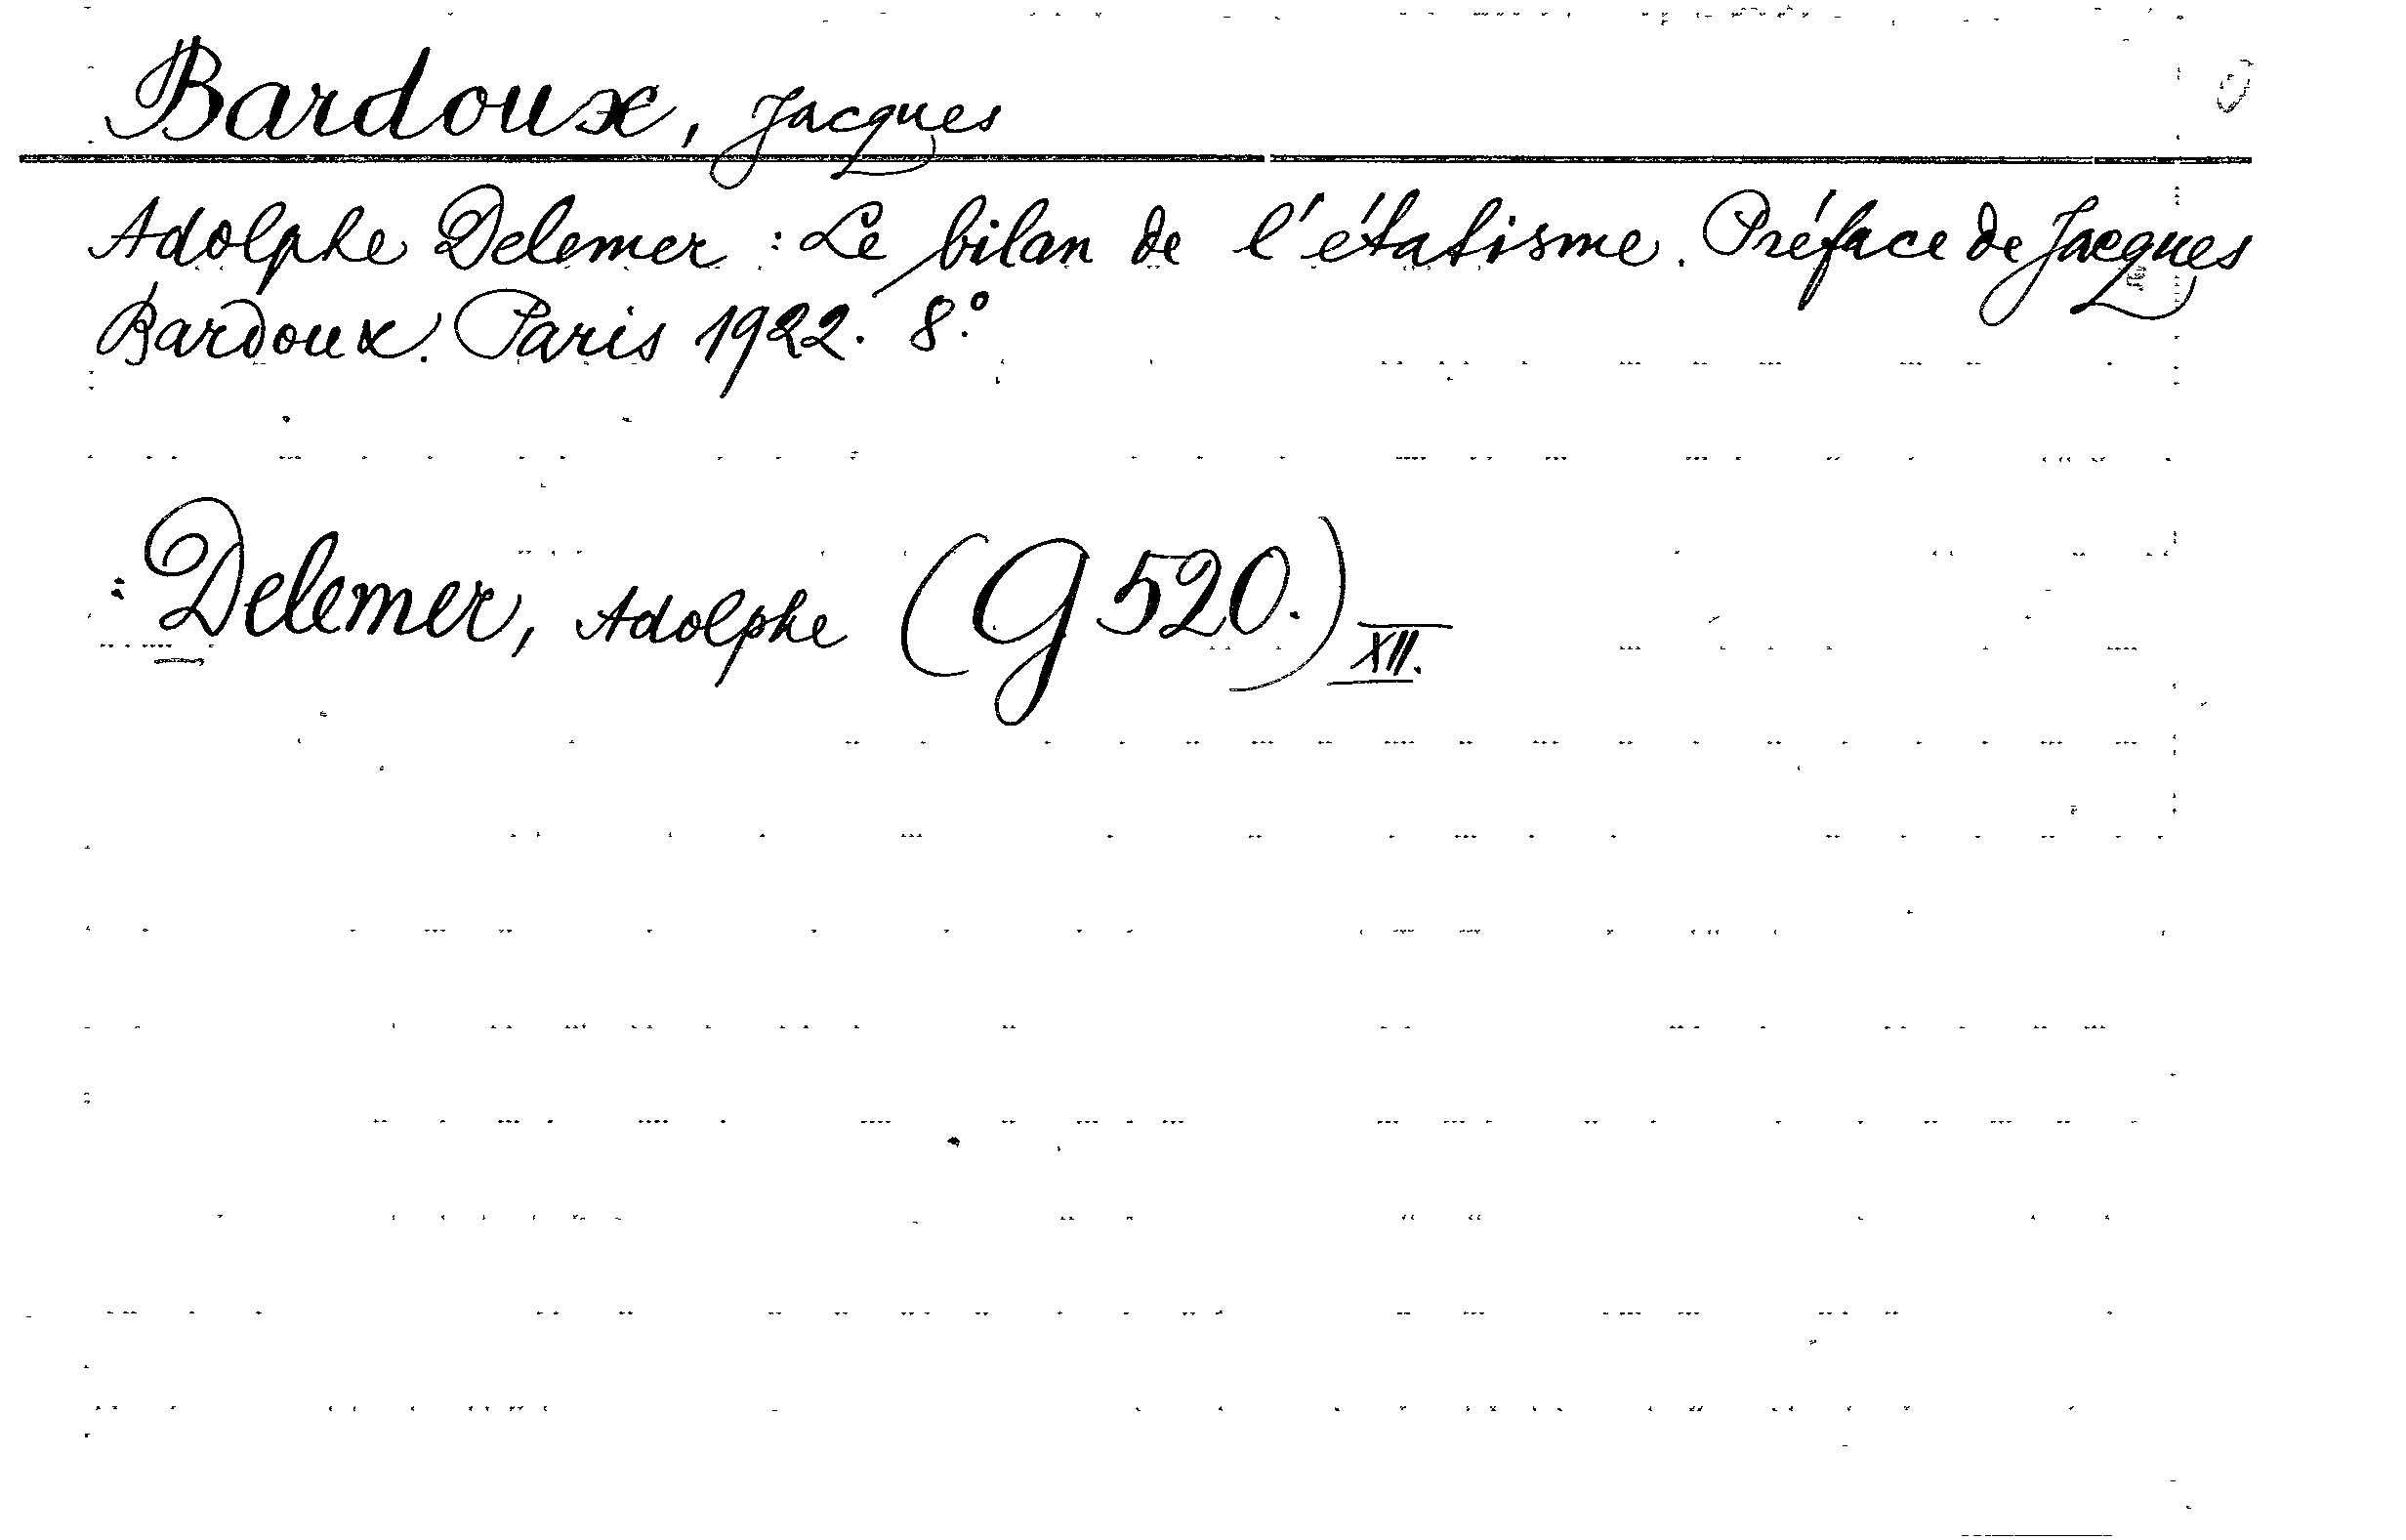 Bardoux, Jacques
Adolphe Delemer : Le bilan de l'étatisme. Préface de Jacques
Bardoux. Paris 1922. 8.°
: Delemer, Adolphe (G 520.) XII.